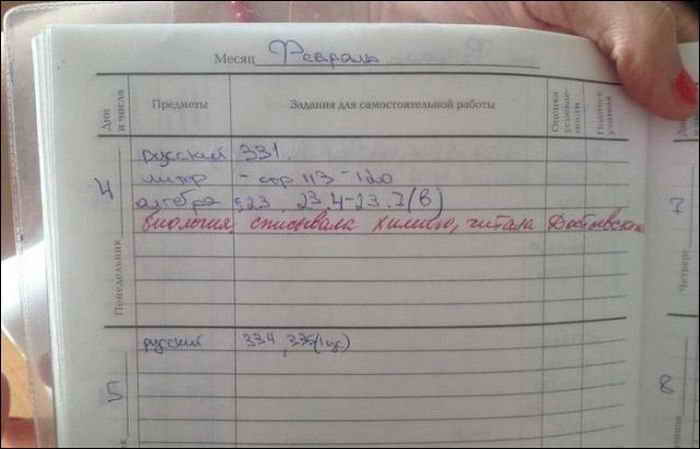 Месяц Февраль
Дни и числа Предметы Задания для самостоятельной работы Оценка успеваемости Подпись учителя
4 Понедельник
русский 331.
литр - стр 113 - 120
алгебра §23, 23.4-23.7(в)
биология, списывала химию, читала Достоевского
5
русский 334, 335(1 уг)
7
Четверг
8